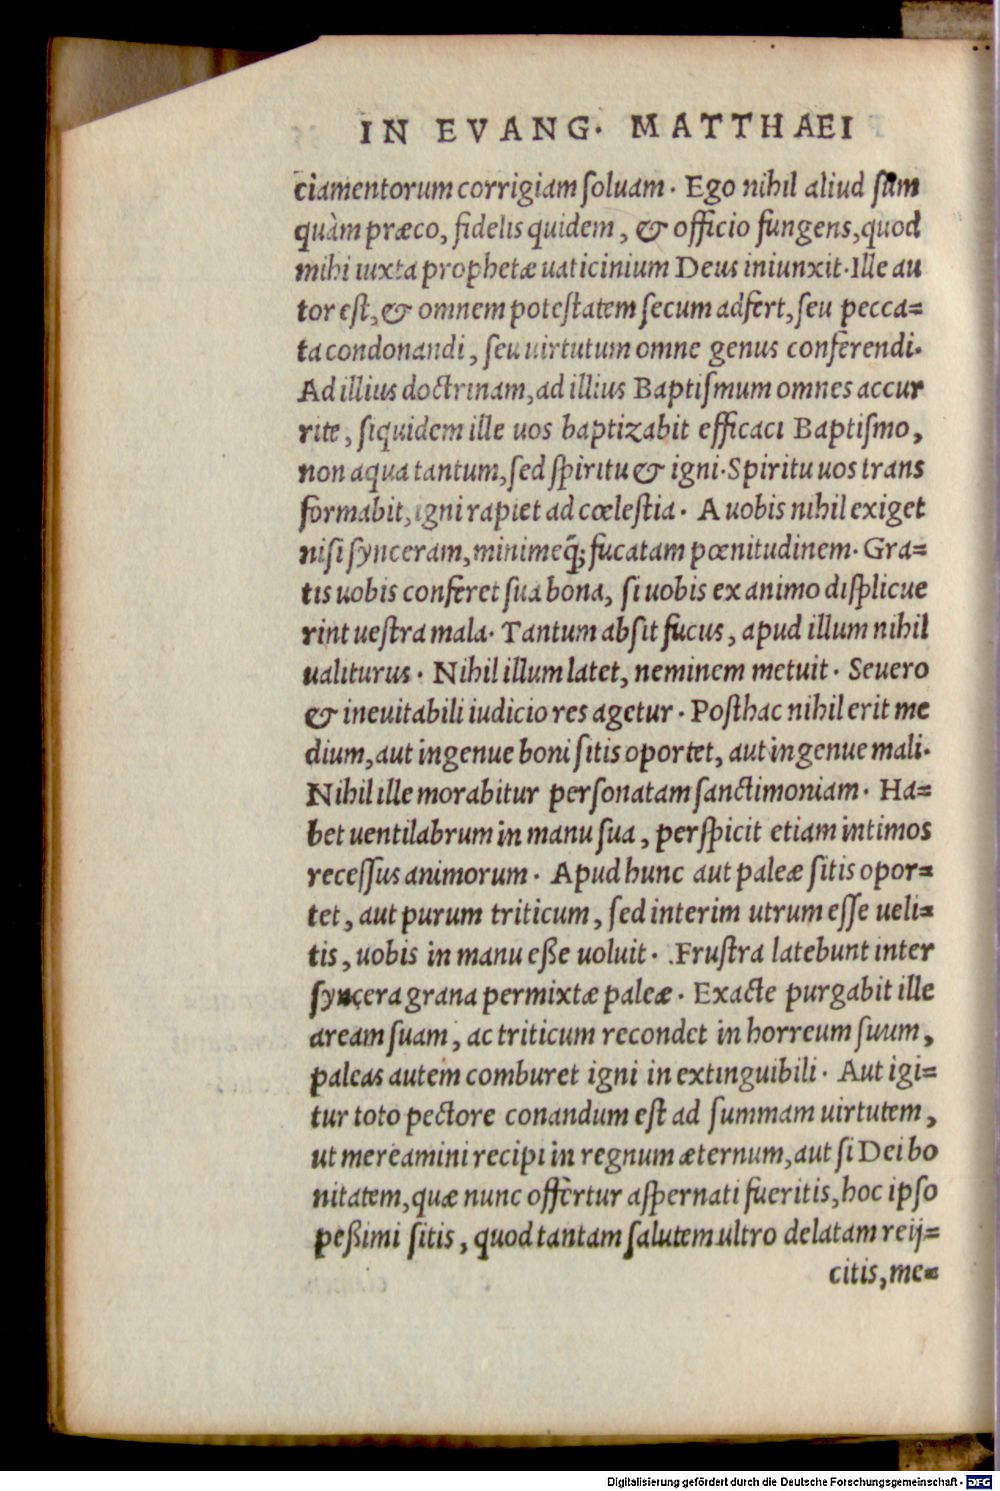 IN EVANG. MATTHAEI
ciamentorum corrigiam ſoluam. Ego nihil aliud ſum
quàm præco, fidelis quidem, & officio fungens, quod
mihi iuxta prophetæ uaticinium Deus iniunxit. Ille au
tor eſt, & omnem poteſtatem ſecum adfert, ſeu pecca=
ta condonandi, ſeu uirtutum omne genus conferendi.
Ad illius doctrinam, ad illius Baptiſmum omnes accur
rite, ſiquidem ille uos baptizabit efficaci Baptiſmo,
non aqua tantum, ſed ſpiritu & igni. Spiritu uos trans
formabit, igni rapiet ad cœleſtia. A uobis nihil exiget
niſi ſynceram, minimeq́; fucatam pœnitudinem. Gra=
tis uobis conferet ſua bona, ſi uobis ex animo diſplicue
rint ueſtra mala. Tantum abſit fucus, apud illum nihil
ualiturus. Nihil illum latet, neminem metuit. Seuero
& ineuitabili iudicio res agetur. Poſthac nihil erit me
dium, aut ingenue boni ſitis oportet, aut ingenue mali.
Nihil ille morabitur perſonatam ſanctimoniam. Ha=
bet uentilabrum in manu ſua, perſpicit etiam intimos
receſſus animorum. Apud hunc aut paleæ ſitis opor=
tet, aut purum triticum, ſed interim utrum eſſe ueli=
tis, uobis in manu eße uoluit. Fruſtra latebunt inter
ſyncera grana permixtæ paleæ. Exacte purgabit ille
aream ſuam, ac triticum recondet in horreum ſuum,
paleas autem comburet igni inextinguibili. Aut igi=
tur toto pectore conandum eſt ad ſummam uirtutem,
ut mereamini recipi in regnum æternum, aut ſi Dei bo
nitatem, quæ nunc offertur aſpernati fueritis, hoc ipſo
peßimi ſitis, quod tantam ſalutem ultro delatam reij=
citis, me=
Digitalisierung gefördert durch die Deutsche Forschungsgemeinschaft - DFG